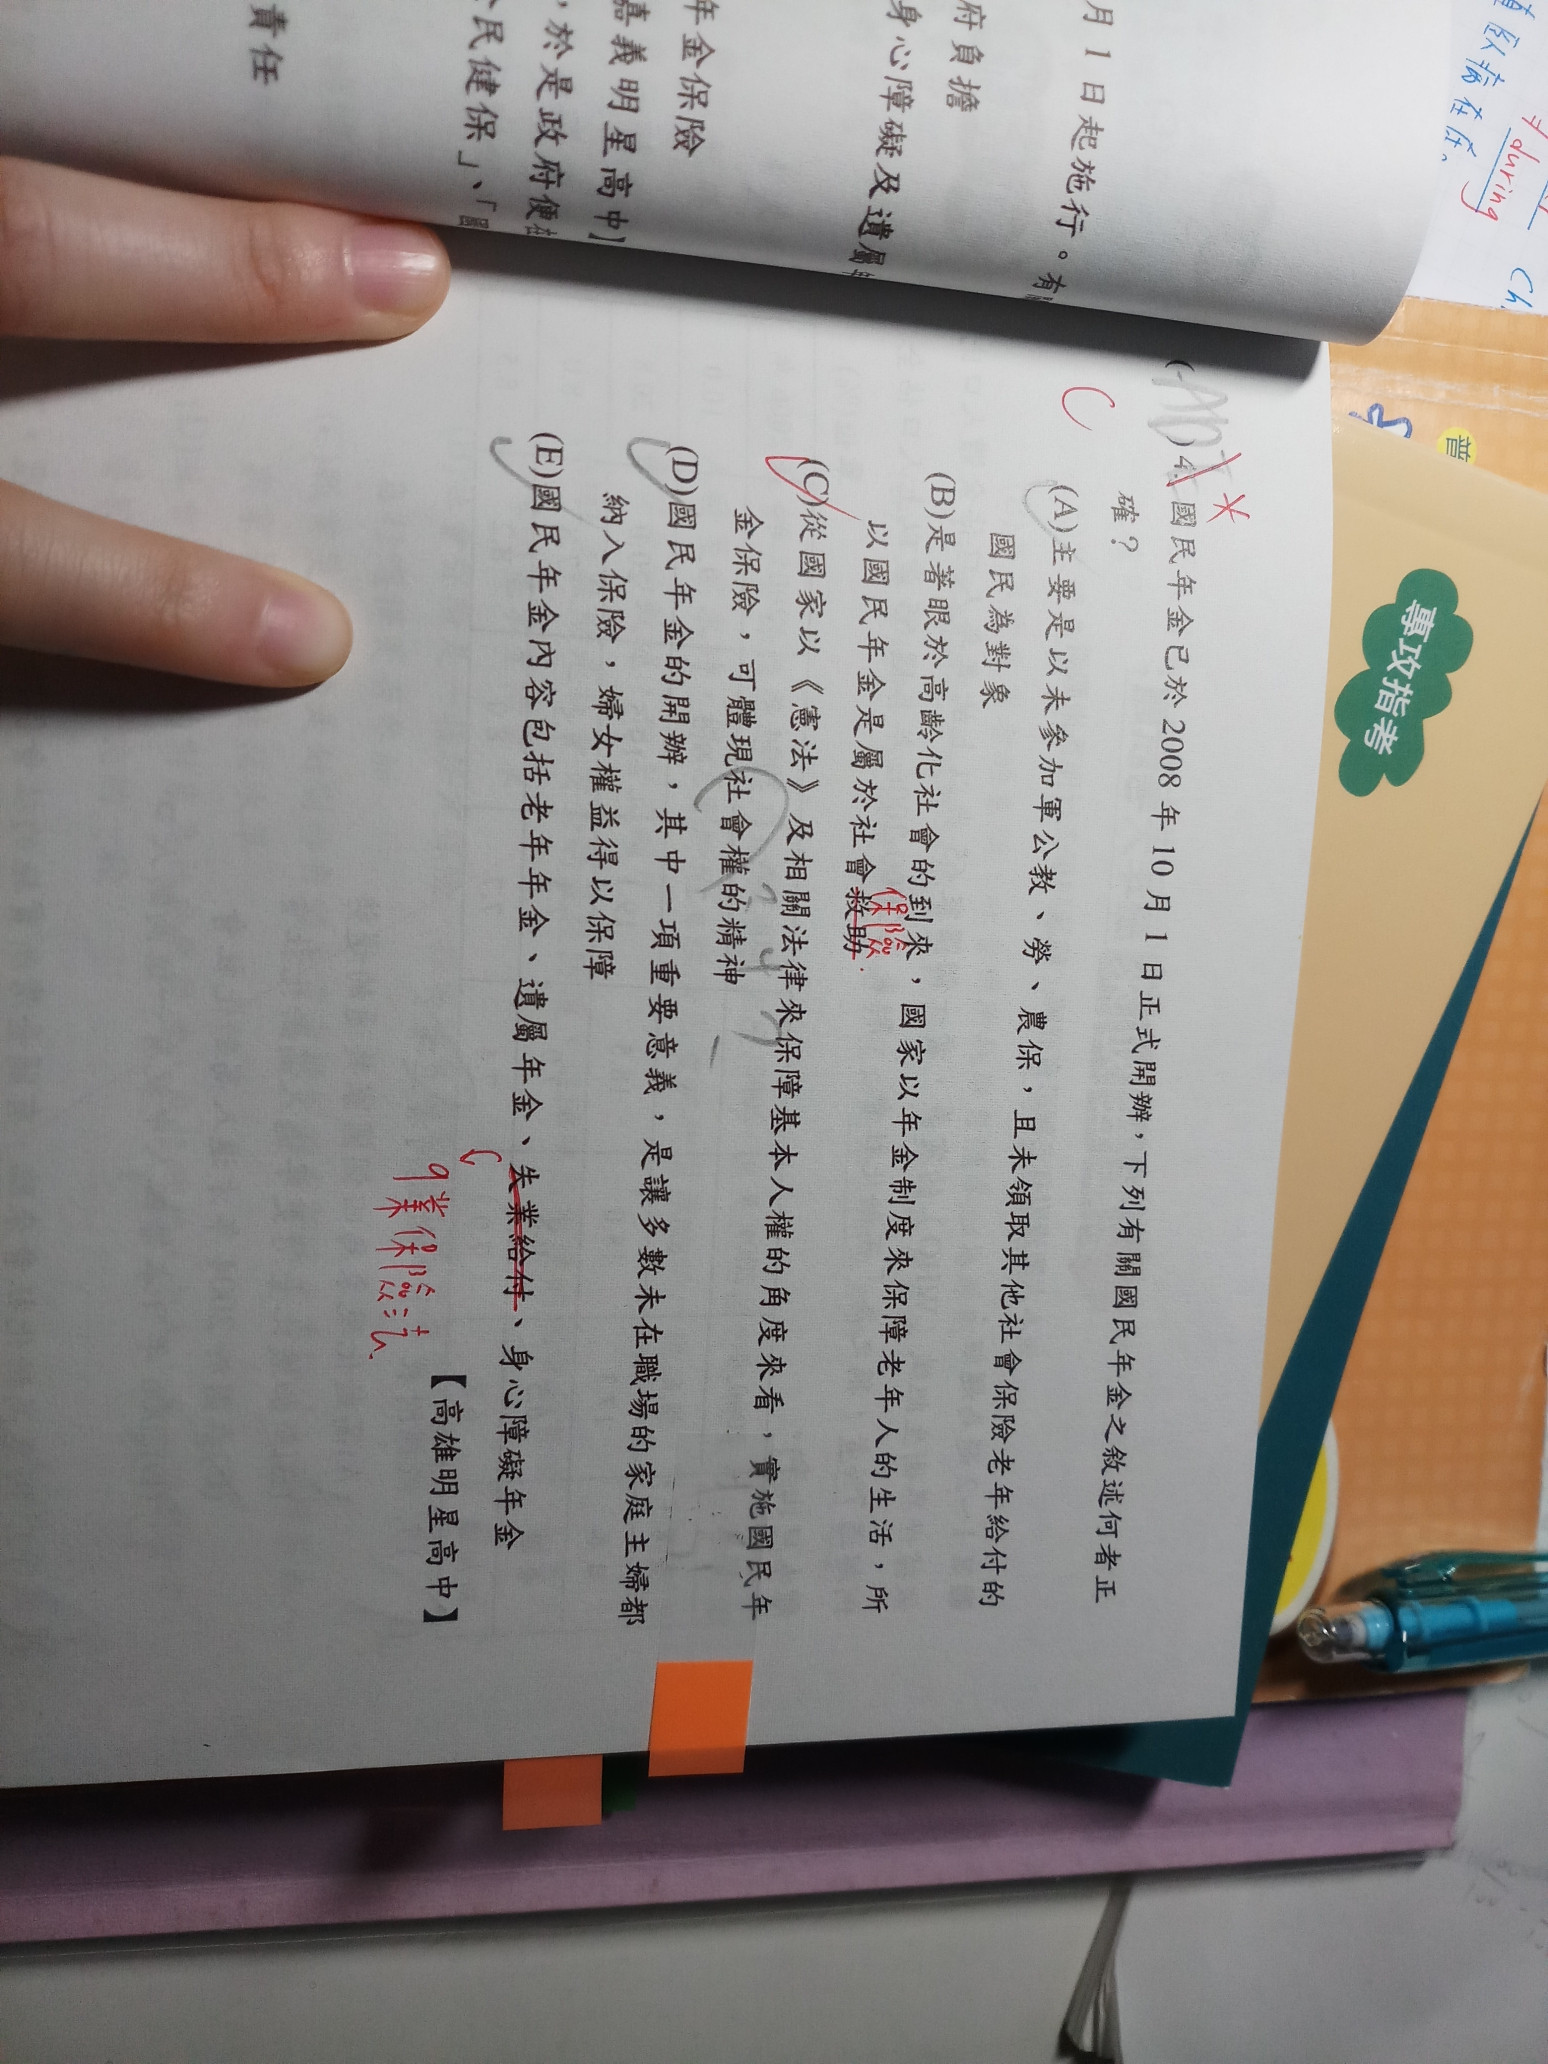 月 1 日起施行。有
府負擔
身心障礙及遺屬年
年金保險
嘉義明星高中】
，於是政府便在
民健保」、「國
責任
during
Ch
普
專攻指考
C
( AD )4.國民年金已於 2008 年 10 月 1 日正式開辦，下列有關國民年金之敘述何者正
確？
(A)主要是以未參加軍公教、勞、農保，且未領取其他社會保險老年給付的
國民為對象
(B)是著眼於高齡化社會的到來，國家以年金制度來保障老年人的生活，所
以國民年金是屬於社會救助
保險
(C)從國家以《憲法》及相關法律來保障基本人權的角度來看，實施國民年
金保險，可體現社會權的精神
(D)國民年金的開辦，其中一項重要意義，是讓多數未在職場的家庭主婦都
納入保險，婦女權益得以保障
(E)國民年金內容包括老年年金、遺屬年金、失業給付、身心障礙年金
業保險法
【高雄明星高中】